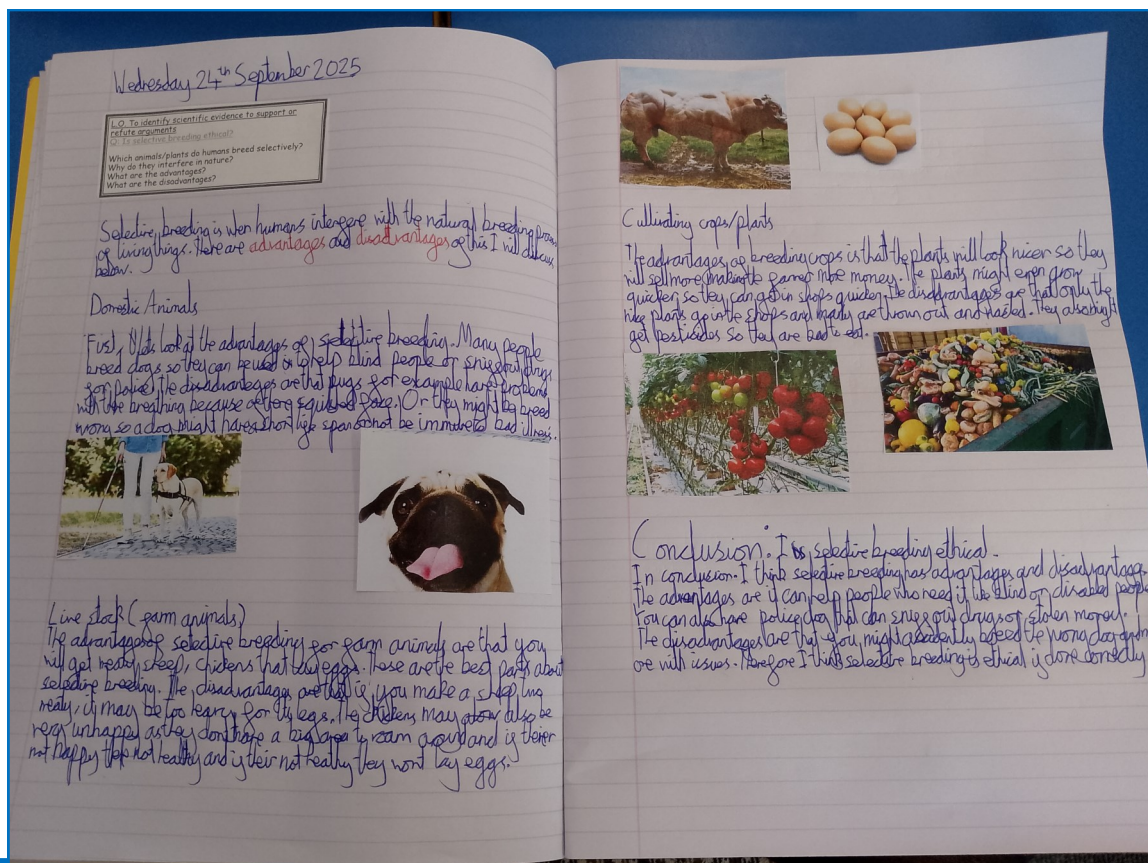 Wednesday 24th September 2025
L.O. To identify scientific evidence to support or
refute arguments
Q: Is selective breeding ethical?
Which animals/plants do humans breed selectively?
Why do they interfere in nature?
What are the advantages?
What are the disadvantages?
Selective breeding is when humans interfere with the natural breeding process
of living things. There are advantages and disadvantages of this I will discuss
below.
Domestic Animals
First, lets look at the advantages of selective breeding. Many people
breed dogs so they can be used to help blind people or sniff out drugs
for police. The disadvantages are that pugs for example have problems
with the breathing because of there squished face. Or they might be breed
wrong so a dog might have a short life span or not be immune to bad illness.
Live stock (farm animals)
The advantages of selective breeding for farm animals are that you
will get meaty sheep, chickens that lay eggs. These are the best parts about
selective breeding. The disadvantages are that if you make a sheep
meaty, it may be too heavy for its legs. The chickens may also be
very unhappy as they dont have a big area to roam around and if there
not happy there not healthy and if their not healthy they wont lay eggs.
Cultivating crops/plants
The advantages of breeding crops is that the plants will look nicer so they
will sell more making the farmer more money. The plants might even grow
quicker so they can go in shops quicker. The disadvantages are that only the
nice plants go in the shops and many are thrown out and wasted. They also might
get pesticides so they are bad to eat.
Conclusion: Is selective breeding ethical.
In conclusion. I think selective breeding has advantages and disadvantages.
The advantages are it can help people who need it like blind or disabled people.
You can also have police dog that can sniff out drugs or stolen money.
The disadvantages are that you might accidently breed the wrong dog
one with issues. Therefore I think selective breeding is ethical if done correctly